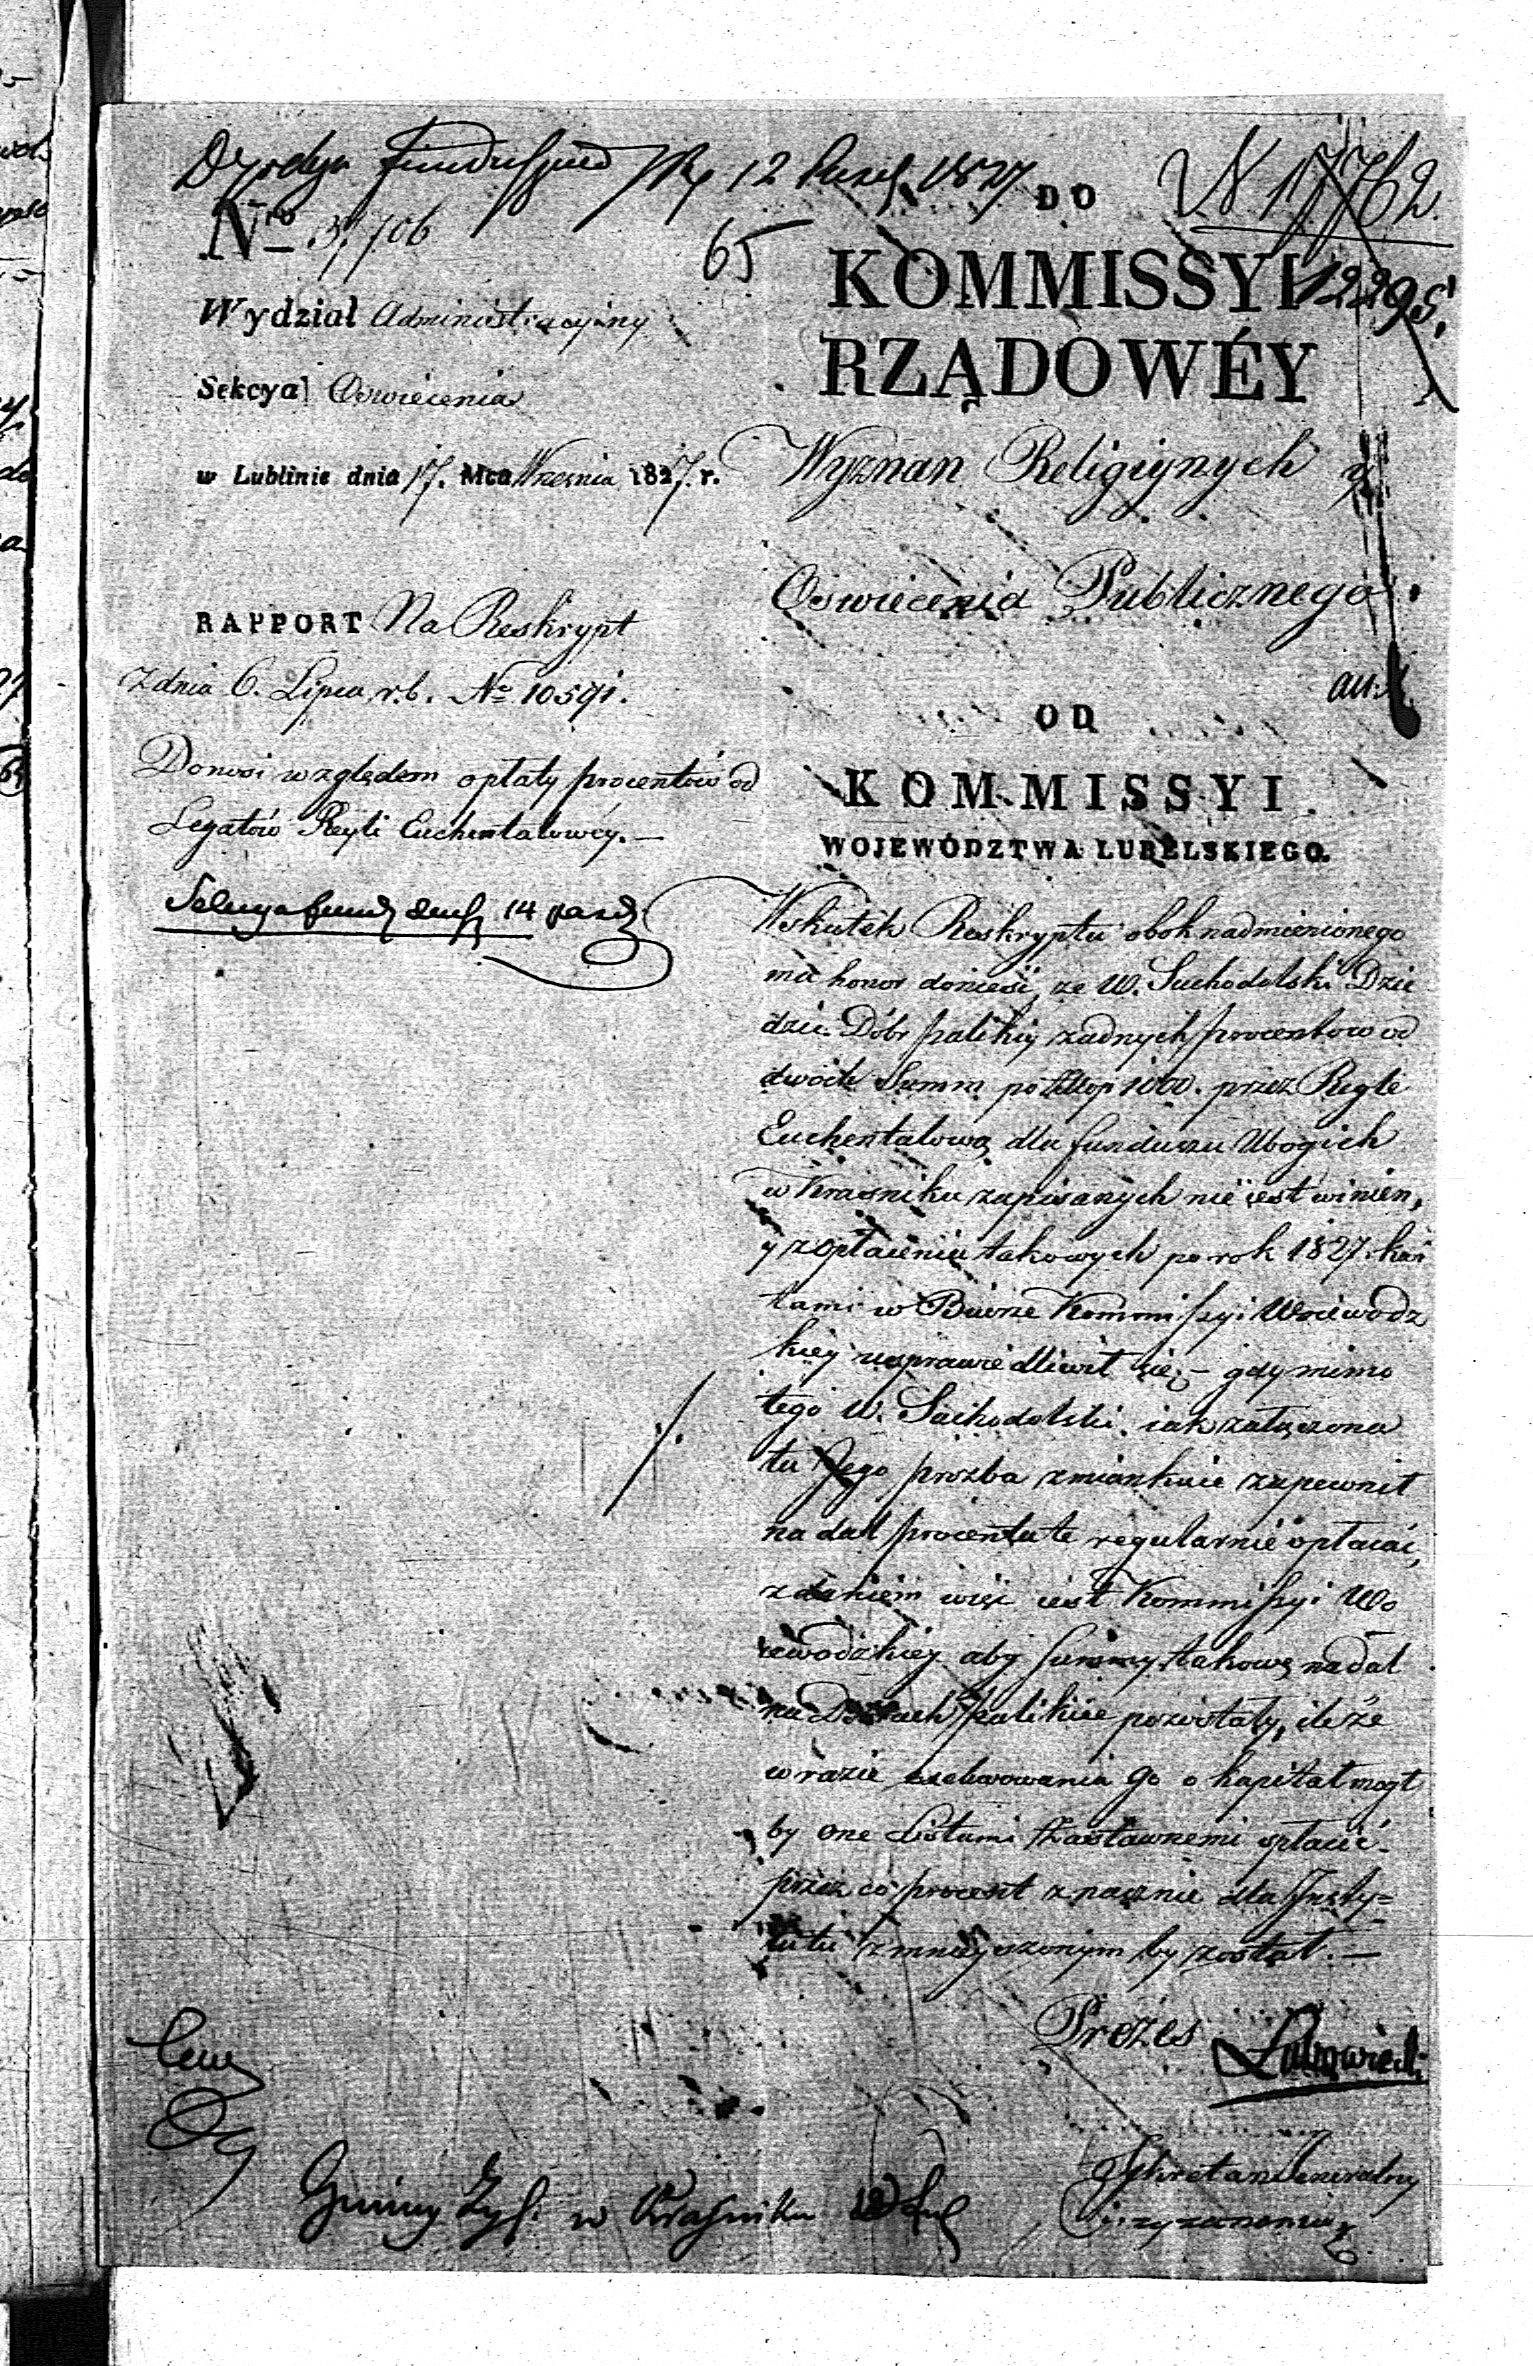 12 1827
N 17762
12295.
Nro 31706
65
DO
KOMMISSYI
RZĄDOWÉY
Wydział Administracyiny
Sekcya Oswiecenia
w Lublinie dnia 17. Mca Wrzesnia 1827. r.
Wyznan Religiynych y
Oswiecenia Publicznego
RAPPORT Na Reskrypt
z dnia 6. Lipca r.b. No 10591.
Donosi względem opłaty procentów od
Legatów Reyli Euchentalowéy. —
OD
KOMMISSYI
WOJEWÓDZTWA LUBELSKIEGO.
14
Wskutek Reskryptu obok nadmienionego
ma honor donieść, ze W. Suchodolski Dzie
dzic Dóbr palikiy zadnych procentow od
dwóch Summ po 1000. przez Reyle
Euchentalową dla funduszu Ubogich
w Krasniku zapisanych nie iest winien,
y z opłacenia takowych po rok 1827. kwi
tami w Biórze Kommissyi Woiewodz
kiey usprawiedliwił się — gdy mimo
tego W. Suchodolski iak załączona
tu Jego prozba zmiankuie zapewnił
nadal procenta te regularnie opłacać,
zdaniem więc iest Kommissyi Wo
iewodzkiey aby Summy takowe nadal
na Dobrach palikiie pozostały, ileże
w razie exekwowania go o kapitał mogł
by one Listami Zastawnemi spłacić
przez co procent znacznie dla Insty=
tutu zmnieyszonym by został. —
Prezes
Sekretarz Generalny
Gminy Żyd. w Kraśniku